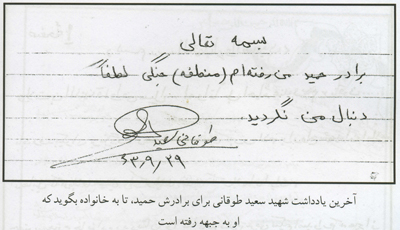 بسمه تعالی
برادر حمید من رفته‌ام (منطقه) جنگی لطفاً
دنبال من نگردید.
طوقانی سعید
۶۳/۹/۲۹
آخرین یادداشت شهید سعید طوقانی برای برادرش حمید، تا به خانواده بگوید که
او به جبهه رفته است